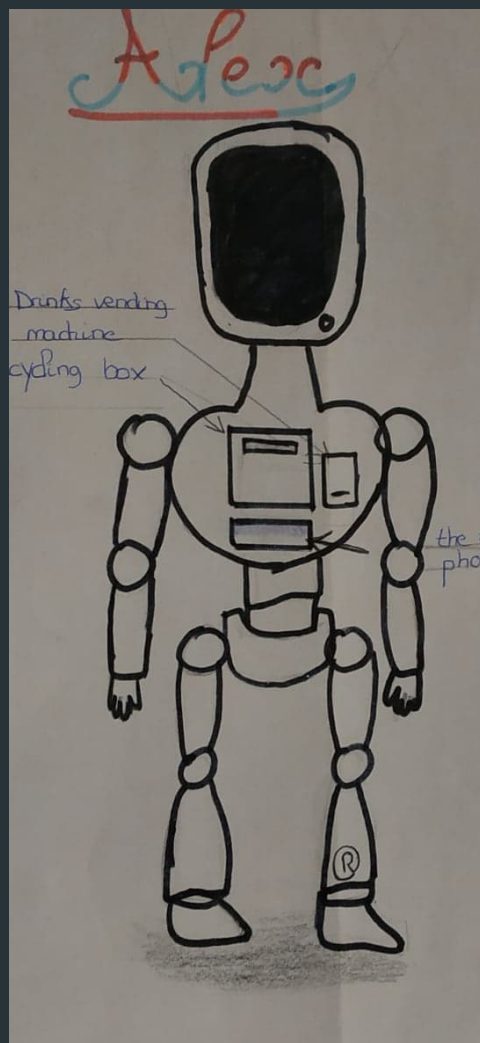 Alex
Drinks vending
machine
cycling box
the
pho
R